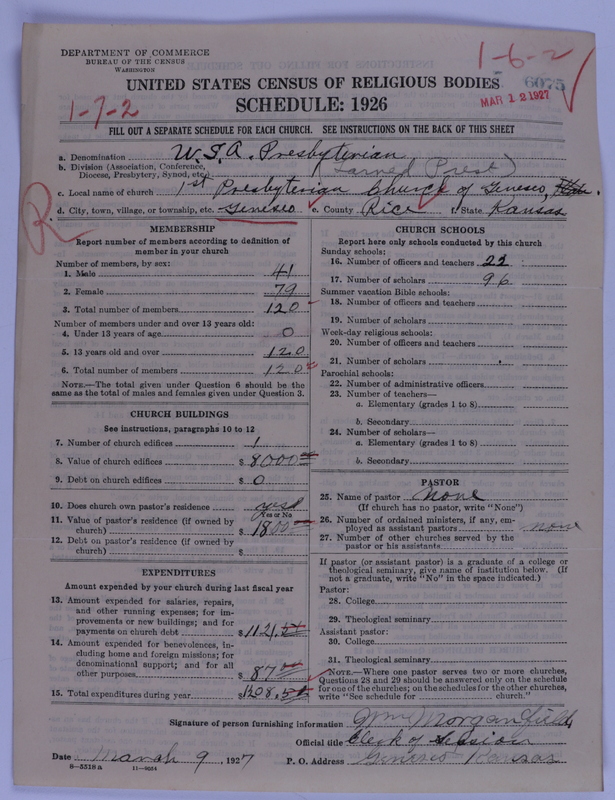 DEPARTMENT OF COMMERCE
BUREAU OF THE CENSUS
WASHINGTON
1-6-2
6075
MAR 12 1927
UNITED STATES CENSUS OF RELIGIOUS BODIES
1-7-2
SCHEDULE: 1926
FILL OUT A SEPARATE SCHEDULE FOR EACH CHURCH. SEE INSTRUCTIONS ON THE BACK OF THIS SHEET
a. Denomination W.S.A. Presbyterian
b. Division (Association, Conference, Diocese, Presbytery, Synod, etc.) (Larned Presb)
c. Local name of church 1st Presbyterian Church of Geneseo,
d. City, town, village, or township, etc. Geneseo e. County Rice f. State Kansas
R
MEMBERSHIP
Report number of members according to definition of
member in your church
Number of members, by sex:
1. Male 41
2. Female 79
3. Total number of members 120
Number of members under and over 13 years old:
4. Under 13 years of age 0
5. 13 years old and over 120
6. Total number of members 120
NOTE.—The total given under Question 6 should be the
same as the total of males and females given under Question 3.
CHURCH BUILDINGS
See instructions, paragraphs 10 to 12
7. Number of church edifices 1
8. Value of church edifices $ 8000
9. Debt on church edifices $ 0
10. Does church own pastor's residence yes
Yes or No
11. Value of pastor's residence (if owned by
church) $ 1800
12. Debt on pastor's residence (if owned by
church) $
EXPENDITURES
Amount expended by your church during last fiscal year
13. Amount expended for salaries, repairs,
and other running expenses; for im-
provements or new buildings; and for
payments on church debt $ 1121.
14. Amount expended for benevolences, in-
cluding home and foreign missions; for
denominational support; and for all
other purposes $ 87
15. Total expenditures during year $ 1208.
CHURCH SCHOOLS
Report here only schools conducted by this church
Sunday schools:
16. Number of officers and teachers 22
17. Number of scholars 96
Summer vacation Bible schools:
18. Number of officers and teachers
19. Number of scholars
Week-day religious schools:
20. Number of officers and teachers
21. Number of scholars
Parochial schools:
22. Number of administrative officers
23. Number of teachers—
a. Elementary (grades 1 to 8)
b. Secondary
24. Number of scholars—
a. Elementary (grades 1 to 8)
b. Secondary
PASTOR
25. Name of pastor None
(If church has no pastor, write "None")
26. Number of ordained ministers, if any, em-
ployed as assistant pastors none
27. Number of other churches served by the
pastor or his assistants
If pastor (or assistant pastor) is a graduate of a college or
theological seminary, give name of institution below. (If
not a graduate, write "No" in the space indicated.)
Pastor:
28. College
29. Theological seminary
Assistant pastor:
30. College
31. Theological seminary
NOTE.—Where one pastor serves two or more churches,
Questions 28 and 29 should be answered only on the schedule
for one of the churches; on the schedules for the other churches,
write "See schedule for church."
Signature of person furnishing information Wm Morganfield
Official title Clerk of Session
Date March 9, 1927 P. O. Address Geneseo Kansas
8-5518 a 11-9024